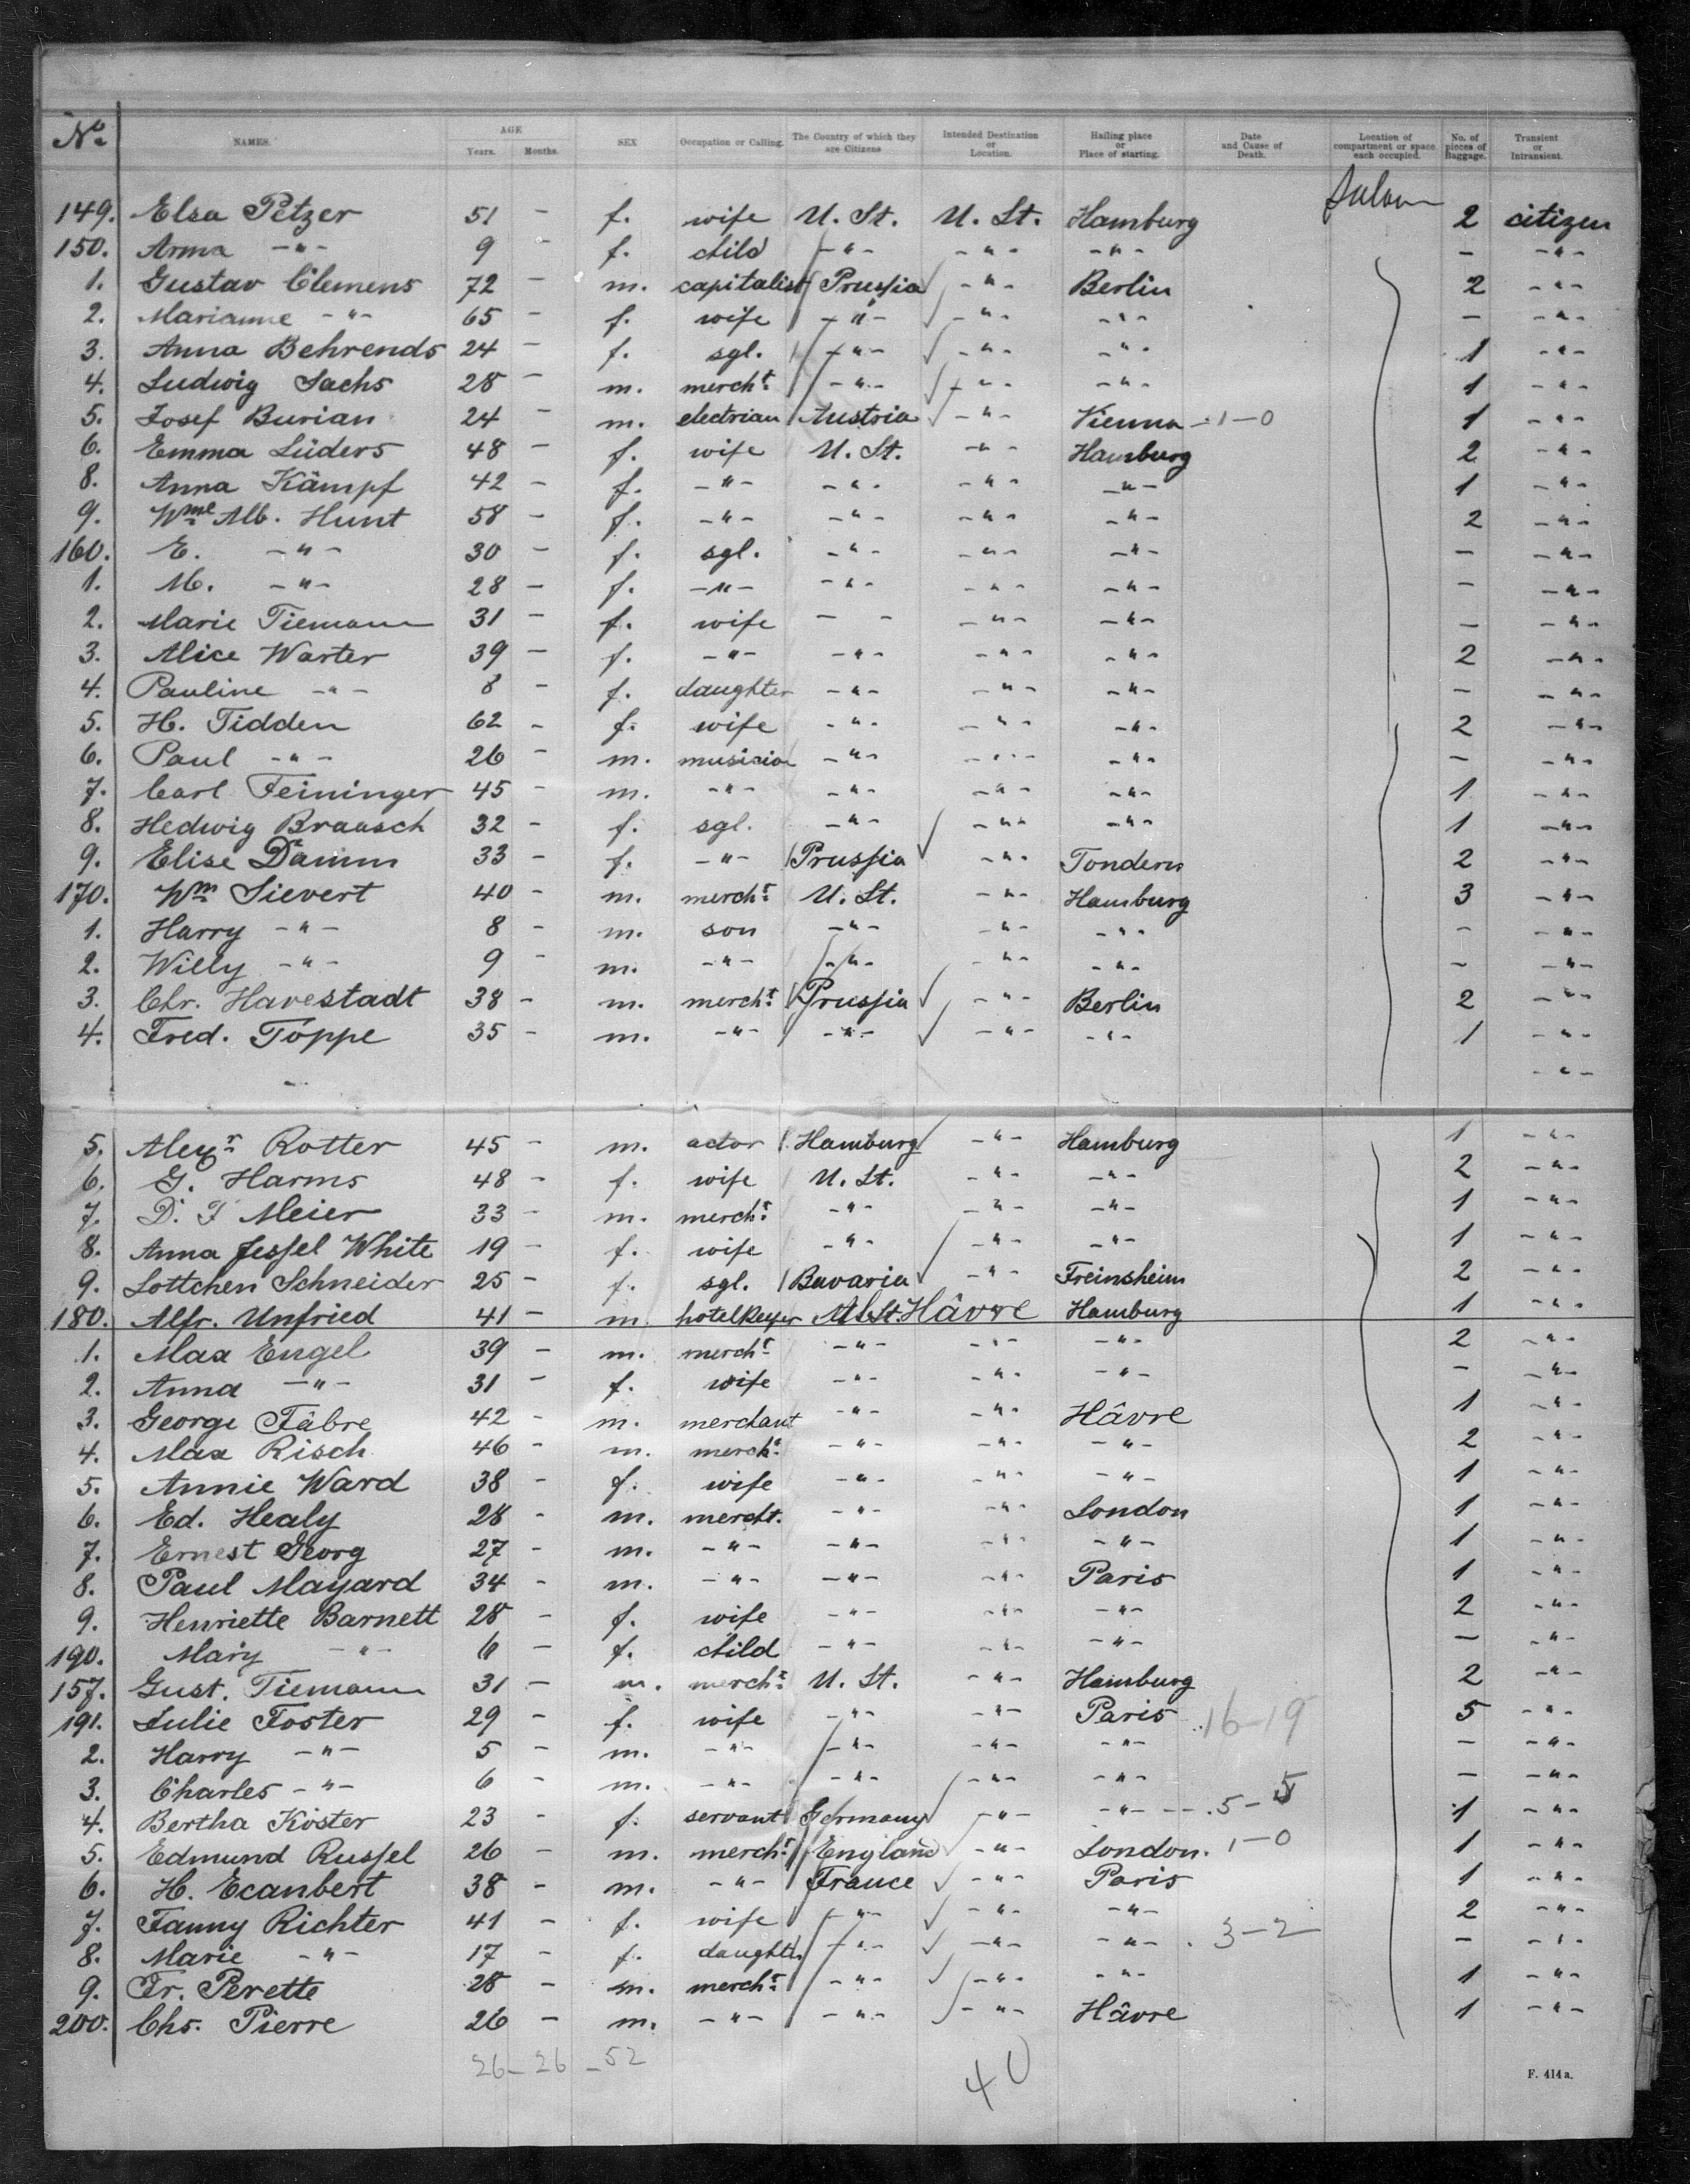 No. NAMES. AGE Years. Months. SEX Occupation or Calling. The Country of which they are Citizens Intended Destination or Location. Hailing place or Place of starting. Date and Cause of Death. Location of compartment or space each occupied. No. of pieces of Baggage. Transient or Intransient.
149. Elsa Petzer 51 - f. wife U. St. U. St. Hamburg 2 citizen
150. Anna -"- 9 - f. child -"- -"- -"- - -"-
1. Gustav Clemens 72 - m. capitalist Prussia -"- Berlin 2 -"-
2. Marianne -"- 65 - f. wife -"- -"- -"- - -"-
3. Anna Behrends 24 - f. sgl. -"- -"- -"- 1 -"-
4. Ludwig Sachs 28 - m. mercht. -"- -"- -"- 1 -"-
5. Josef Burian 24 m. electrian Austria -"- Vienna -1-0 1 -"-
6. Emma Lüders 48 - f. wife U. St. -"- Hamburg 2 -"-
8. Anna Kämpf 42 - f. -"- -"- -"- -"- 1 -"-
9. Wme Alb. Hunt 58 - f. -"- -"- -"- -"- 2 -"-
160. E. -"- 30 - f. sgl. -"- -"- -"- - -"-
1. M. -"- 28 - f. -"- -"- -"- -"- - -"-
2. Marie Tiemann 31 - f. wife - - -"- -"- - -"-
3. Alice Warter 39 - f. -"- -"- -"- -"- 2 -"-
4. Pauline -"- 8 - f. daughter -"- -"- -"- - -"-
5. H. Tidden 62 - f. wife -"- -"- -"- 2 -"-
6. Paul -"- 26 - m. musician -"- -"- -"- - -"-
7. Carl Feininger 45 - m. -"- -"- -"- -"- 1 -"-
8. Hedwig Braasch 32 - f. sgl. -"- -"- -"- 1 -"-
9. Elise Damm 33 - f. -"- Prussia -"- Tondern 2 -"-
170. Wm Sievert 40 - m. mercht. U. St. -"- Hamburg 3 -"-
1. Harry -"- 8 - m. son -"- -"- -"- - -"-
2. Willy -"- 9 - m. -"- -"- -"- -"- - -"-
3. Chr. Havestadt 38 - m. mercht. Prussia -"- Berlin 2 -"-
4. Fred. Töppe 35 - m. -"- -"- -"- -"- 1 -"-
-"-
5. Alexr. Rotter 45 - m. actor Hamburg -"- Hamburg 1 -"-
6. G. Harms 48 - f. wife U. St. -"- -"- 2 -"-
7. D. F Meier 33 - m. mercht. -"- -"- -"- 1 -"-
8. Anna Jessel White 19 - f. wife -"- -"- -"- 1 -"-
9. Lottchen Schneider 25 - f. sgl. Bavaria -"- Freinsheim 2 -"-
180. Alfr. Unfried 41 - m. hotelkeeper Hâvre Hamburg 1 -"-
1. Max Engel 39 - m. mercht. -"- -"- -"- 2 -"-
2. Anna -"- 31 - f. wife -"- -"- -"- - -"-
3. George Fäbre 42 - m. merchant -"- -"- Hâvre 1 -"-
4. Max Risch 46 - m. mercht. -"- -"- -"- 2 -"-
5. Annie Ward 38 - f. wife -"- -"- -"- 1 -"-
6. Ed. Healy 28 - m. mercht. -"- -"- London 1 -"-
7. Ernest Georg 27 - m. -"- -"- -"- -"- 1 -"-
8. Paul Mayard 34 - m. -"- -"- -"- Paris 1 -"-
9. Henriette Barnett 28 - f. wife -"- -"- -"- 2 -"-
190. Mary -"- 6 - f. child -"- -"- -"- - -"-
157. Gust. Tiemann 31 - m. mercht. U. St. -"- Hamburg 2 -"-
191. Julie Foster 29 - f. wife -"- -"- Paris 16-19 5 -"-
2. Harry -"- 5 - m. -"- -"- -"- -"- - -"-
3. Charles -"- 6 - m. -"- -"- -"- -"- - -"-
4. Bertha Köster 23 - f. servant Germany -"- -"- 5-5 1 -"-
5. Edmund Russel 26 - m. mercht. England -"- London. 1-0 1 -"-
6. H. Ecanbert 38 - m. -"- France -"- Paris 1 -"-
7. Fanny Richter 41 - f. wife -"- -"- -"- 2 -"-
8. Marie -"- 17 - f. daughter -"- -"- -"- 3-2 - -"-
9. Fr. Perette 28 - m. mercht. -"- -"- -"- 1 -"-
200. Chs. Pierre 26 - m. -"- -"- -"- Hâvre 1 -"-
26-26-52 40
F. 414a.